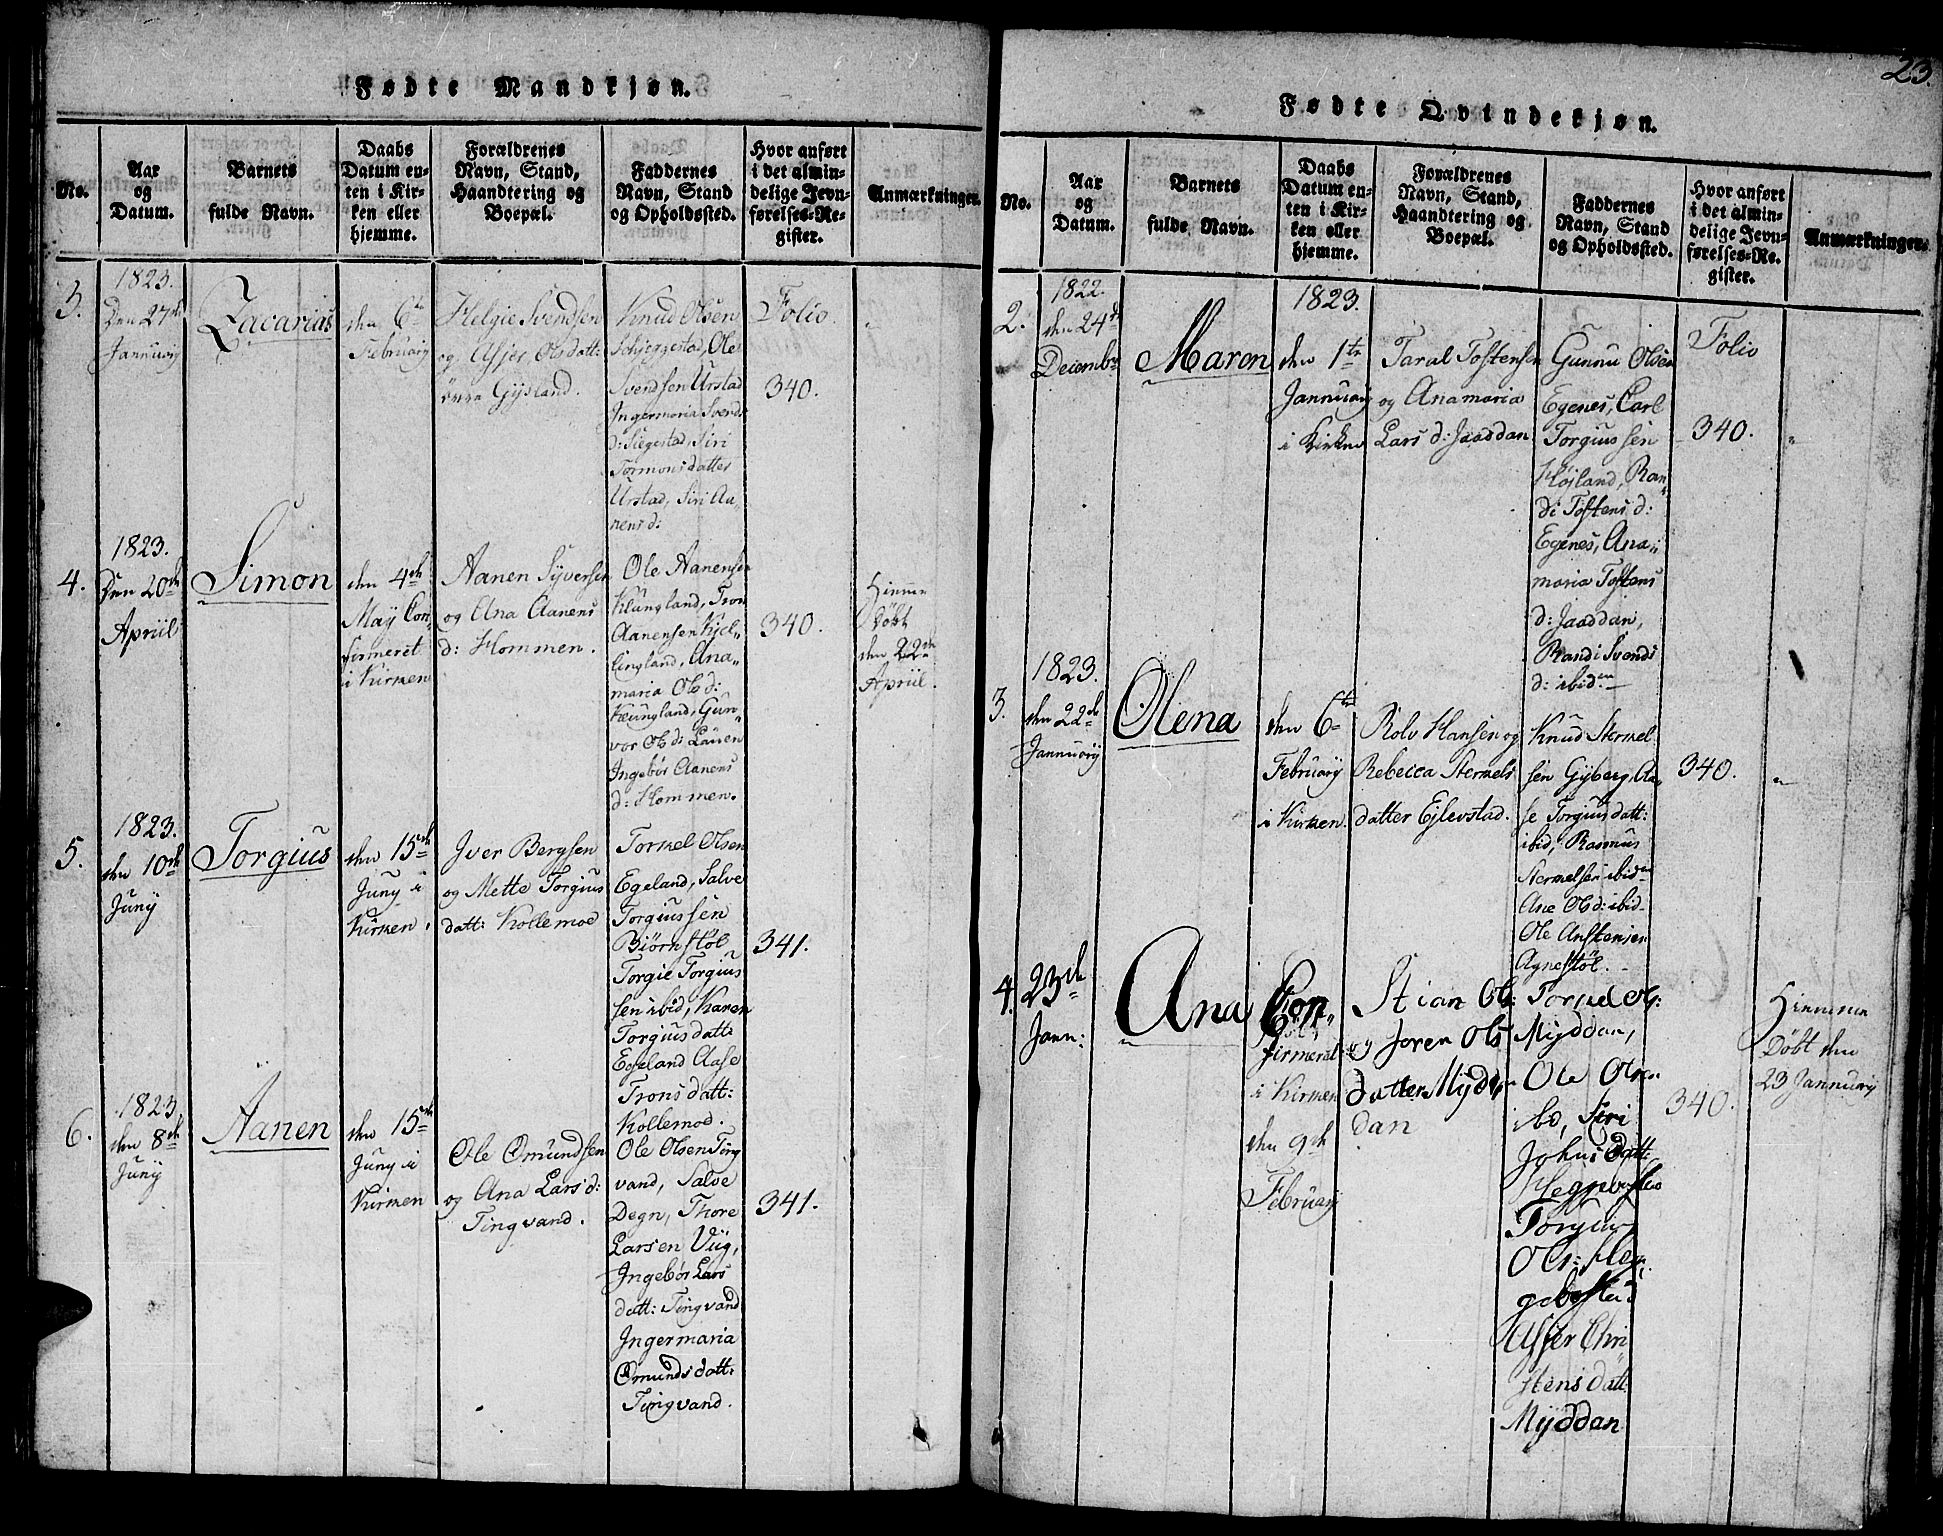 Fødte Mandkjøn.
No.
Aar
og
Datum.
Barnets
fulde Navn.
Daabs
Datum en-
ten i Kir-
ken eller
hjemme.
Forældrenes
Navn, Stand,
Haandtering og
Boepæl.
Faddernes
Navn, Stand
og Opholdssted.
Hvor anført
i det almin-
delige Jevn-
førelses-Re-
gister.
Anmærkninger.
3.
1823.
Den 27de
Januarÿ
Zacarias
den 6te
Februarÿ
Helgie Svendsen
og Asjer Olsdatt:
Gÿsland.
Knud Olsen
Schjeggestad, Ole
Svendsen Urstad
Ingermoria Svends
d: Siegestad, Siri
Tormonsdatter
Urstad, Siri Aa
nens d:
Folio.
340.
4.
1823.
Den 20de
Apriil
Simon
den 4de
Maÿ Con„
firmeret
i Kirken
Aanen Sÿversen
og Ana Aanens
d: Hommen.
Ole Aanensen
Klungland, Tron
Aanensen Kjel„
lingland, Ana„
maria Ols d:
Klungland, Gun„
vor Ols d: Lauen
Ingebor Aanens
d: Hommen.
340.
Hiemme
Døbt
den 22de
Apriil.
5.
1823.
den 10de
Junÿ
Torgius
den 15de
Junÿ i
Kirken.
Jver Bergsen
og Mette Torgius
datt: Kollemoe
Tormel Olsen
Egeland, Salve
Torgiussen
Biørnstøl
Torgie Torgius
sen ibid, Karen
Torgius datt:
Egeland Aase
Trons datt:
Kollemod.
341.
6.
1823.
den 8de
Junÿ
Aanen
den 15de
Junÿ i
Kirken
Ole Omundsen
og Ana Lars d:
Tingvand.
Ole Olsen Ting
vand, Salve
Degn, Thore
Larsen Viig,
Ingebor Lars
datt: Tingvand
Ingermaria
Omunds datt:
Tingvand.
341.
23.
Fødte Qvindekjøn.
No.
Aar
og
Datum.
Barnets
fulde Navn.
Daabs
Datum en-
ten i Kir-
ken eller
hjemme.
Forældrenes
Navn, Stand,
Haandtering og
Boepæl.
Faddernes
Navn, Stand
og Opholdssted.
Hvor anført
i det almin-
delige Jevn-
førelses-Re-
gister.
Anmærkninger.
2.
1822.
den 24de
Decembr
Maren
1823.
den 1te
Januarÿ
i Kirken
Taral Tostensen
og Anamaria
Lars d: Jaaddan
Gunnu Olsen
Egenes, Carl
Torgiussen
Højland, Ran„
di Tostens d:
Egenes, Ana„
maria Tostens
d: Jaaddan,
Randi Svends
d: ibid.
Folio
340.
3.
1823.
den 22de
Januarÿ
Olena
den 6te
Februarÿ
i Kirken.
Rolv Hansen og
Rebecca Stermels
datter Ejlevstad.
Knud Stermel
sen Gÿberg, Aa„
se Torgius datt:
ibid, Rasmus
Stermelsen ibid
Ane Ols d: ibid
Ole Anstensen
Agnestøl.
340.
4.
23de
Jann:
Ana
Con„
firmeret
i Kirken
den 9de
Februarÿ
Stian Ols:
og Joren Ols
datter Mÿd„
dan
Tormel Ols:
Mÿddan,
Ole Olsen
ibd, Siri
Johns datt:
Heggebostad
Torgius
Ols: Heg„
gebostad
Asser Chri
stens datt:
Mÿddan
340.
Hiemme
Døbt den
23 Januarÿ